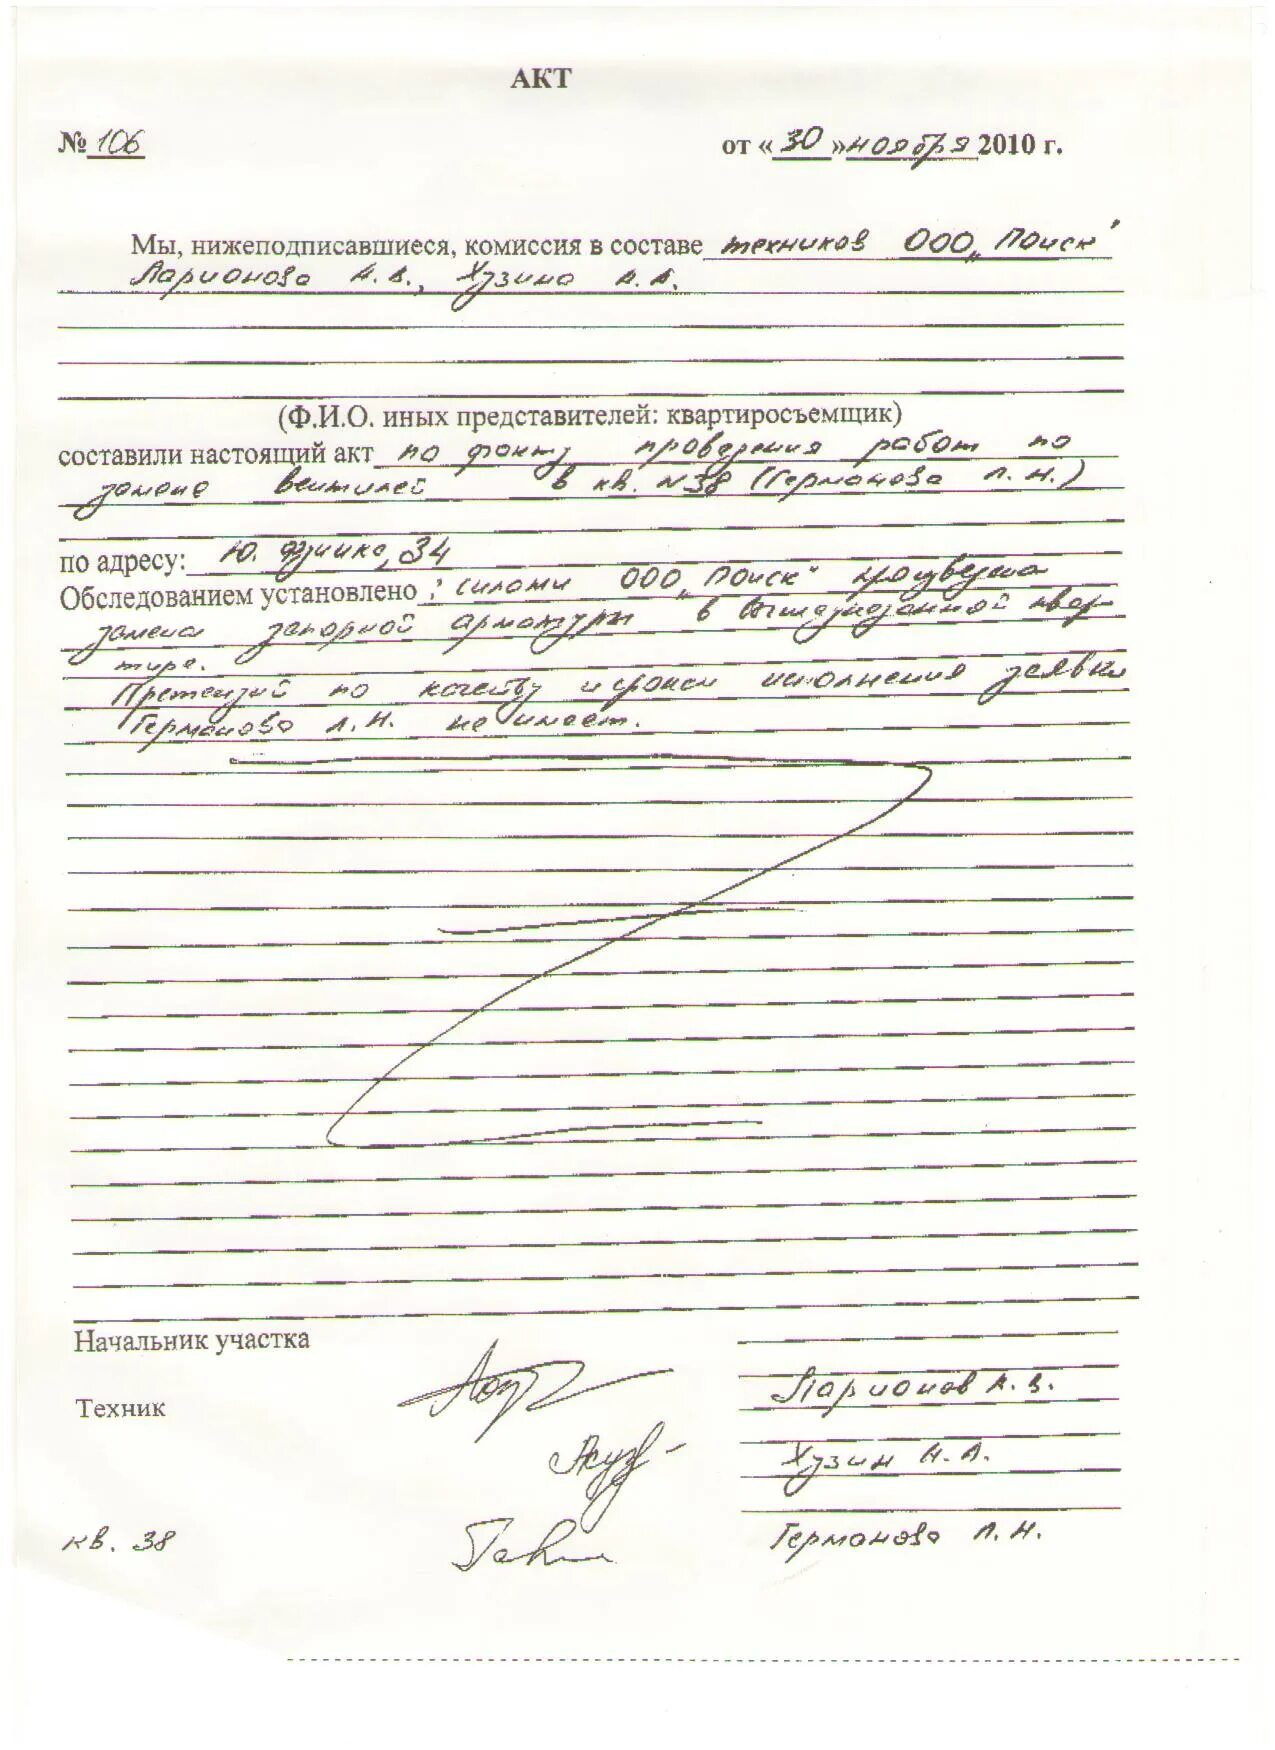 АКТ
№ 106 от «30» ноября 2010 г.
Мы, нижеподписавшиеся, комиссия в составе техников ООО „Поиск"
Ларионова А.В., Хузина А.А.
(Ф.И.О. иных представителей: квартиросъемщик)
составили настоящий акт по факту проведения работ по
замене вентилей в кв. №38 (Германова Л.Н.)
по адресу: Ю. Фучика, 34
Обследованием установлено: силами ООО „Поиск" произведена
замена запорной арматуры в вышеуказанной квар-
тире.
Претензий по качеству и срокам исполнения заявки
Германова Л.Н. не имеет.
Начальник участка
Ларионов А.В.
Техник
Хузин А.А.
кв. 38 Германова Л.Н.